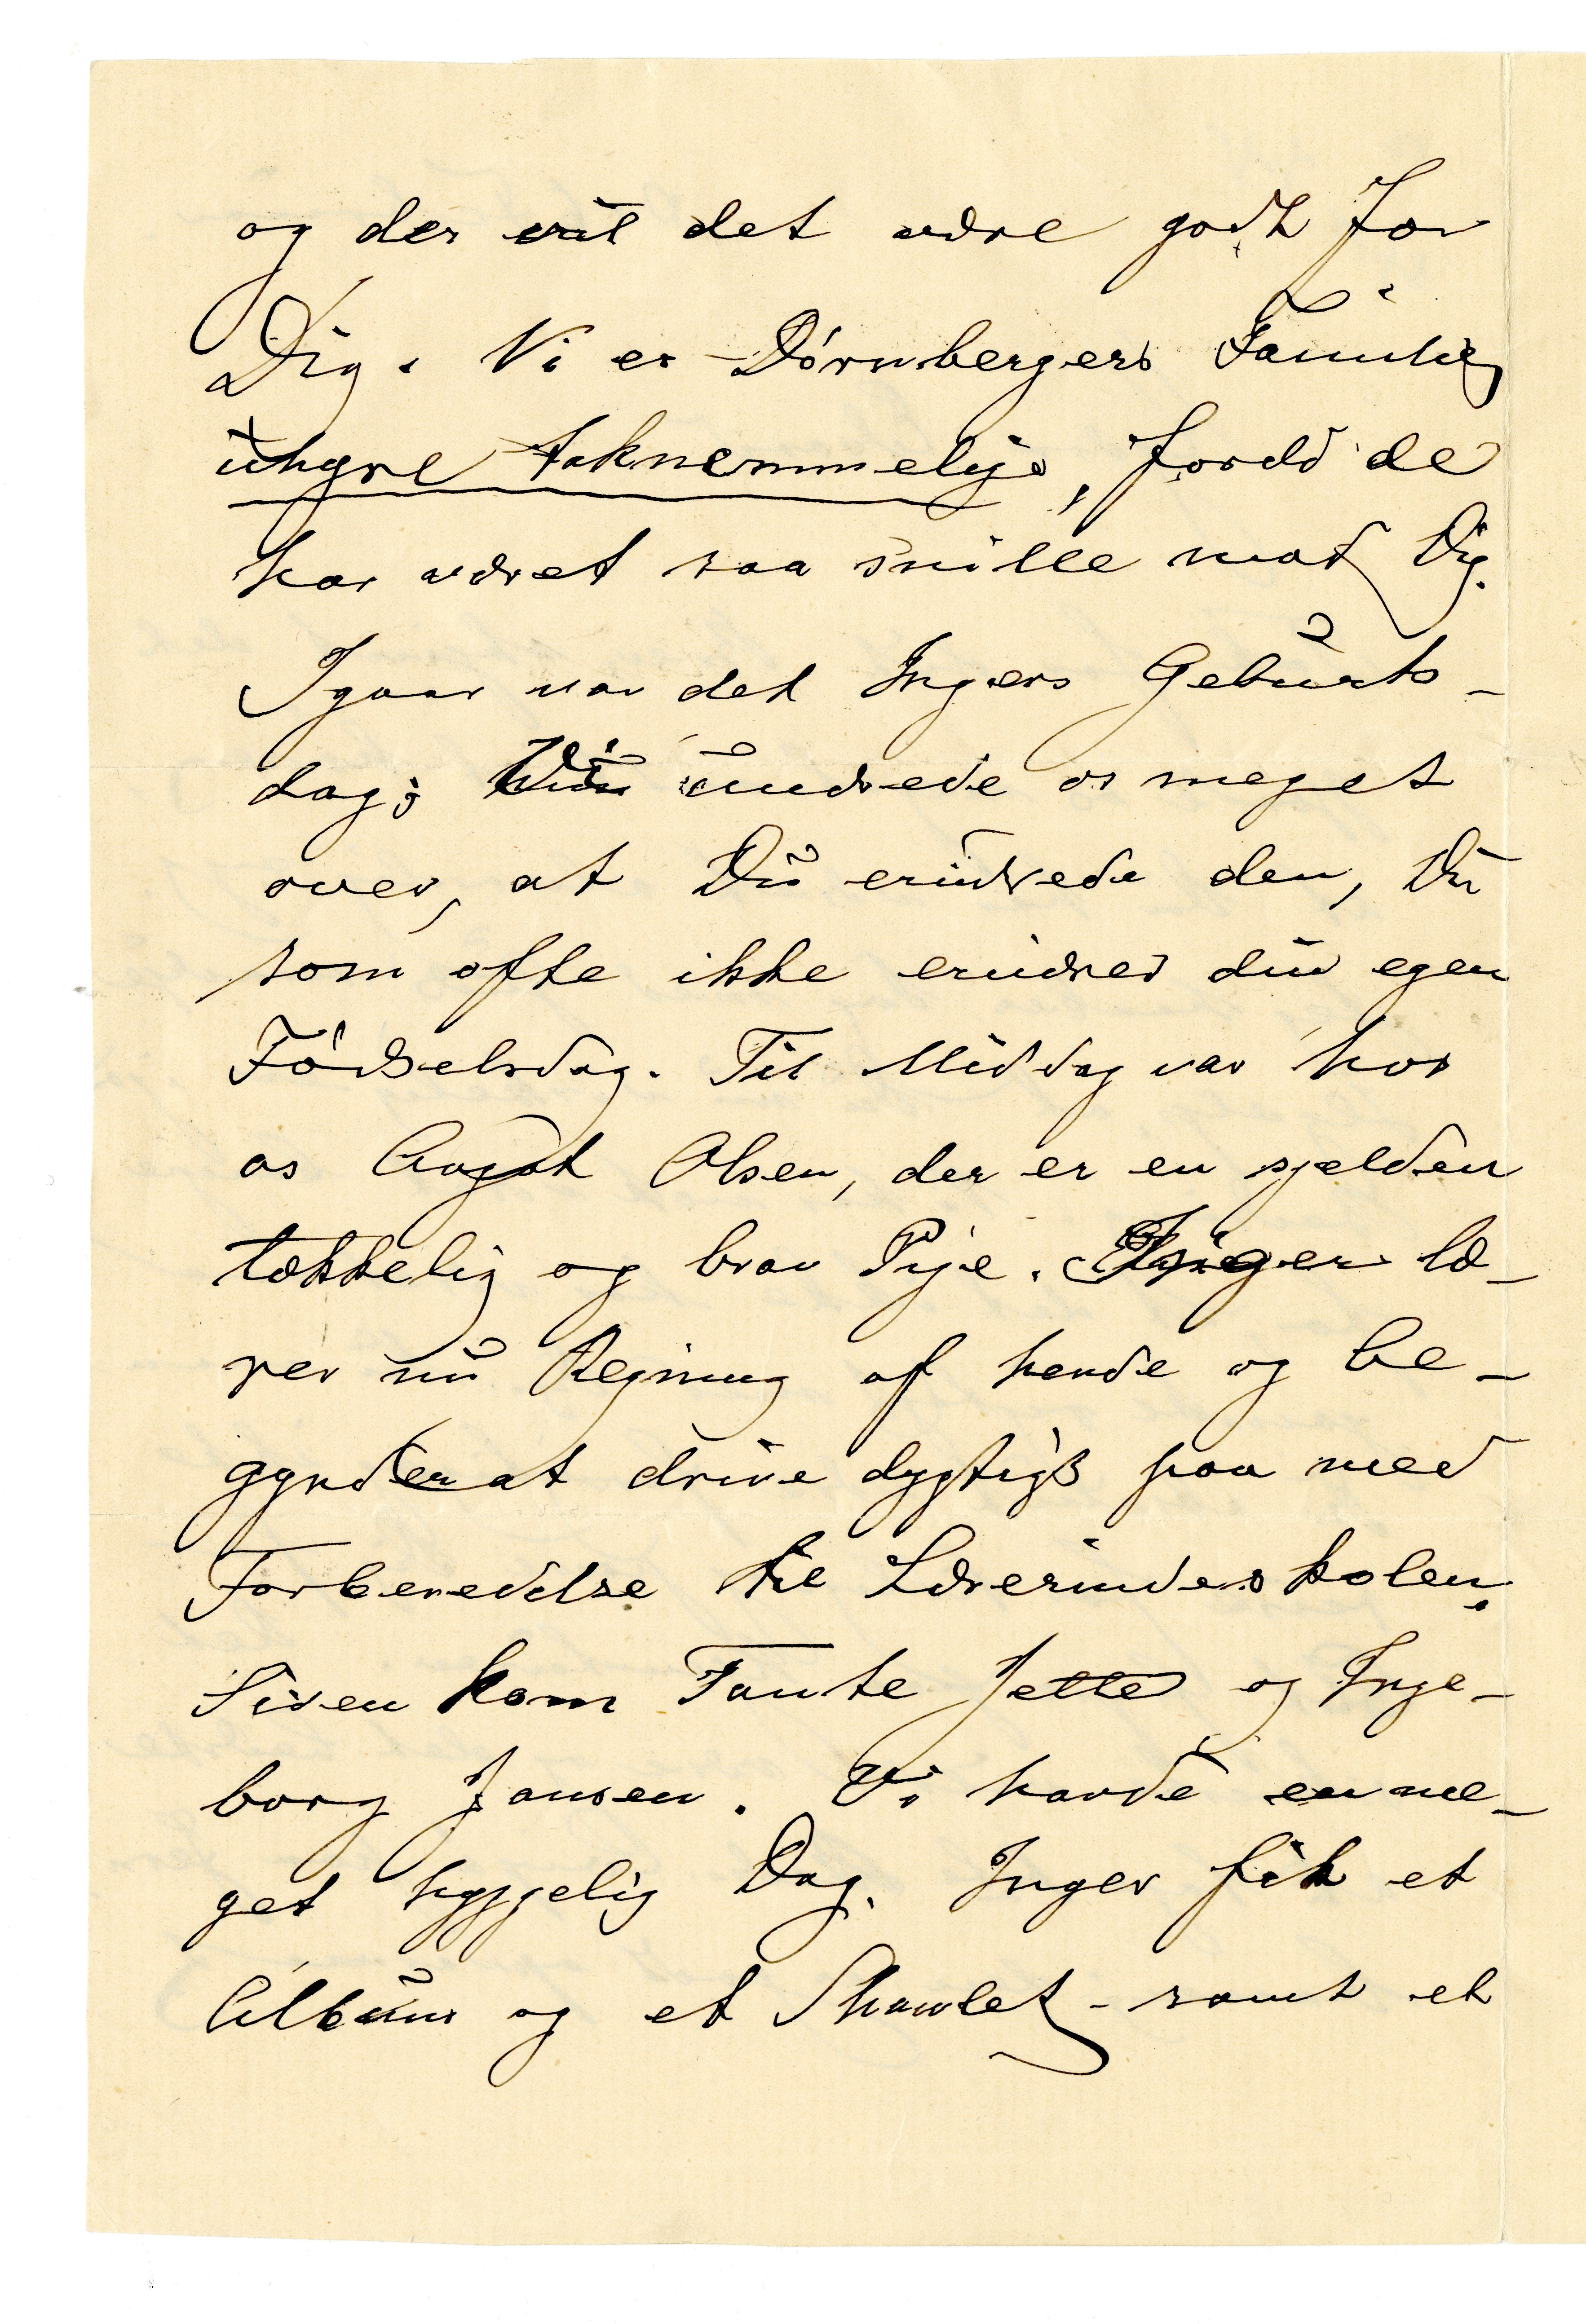 og der vil det være godt for
Dig. Vi er Dörnbergers Familie
uhyre taknemmelige, fordi de
har været saa snille mod Dig.
Igaar var det Ingers Geburts-
dag; Vi undrede os meget
over, at Du erindrede den, Du
som ofte ikke erindrer din egen
Födselsdag. Til Middag var hos
os Aagot Olsen, der er en sjelden
tækkelig og brav Pige. Inger læ-
rer nu Regning af hende og be-
gynder at drive dygtigt paa med
Forberedelse til Lærerindeskolen.
Siden kom Tante Jette og Inge-
borg Jansen. Vi havde en me-
get hyggelig Dag. Inger fik et
Album og et Shawlet - samt et